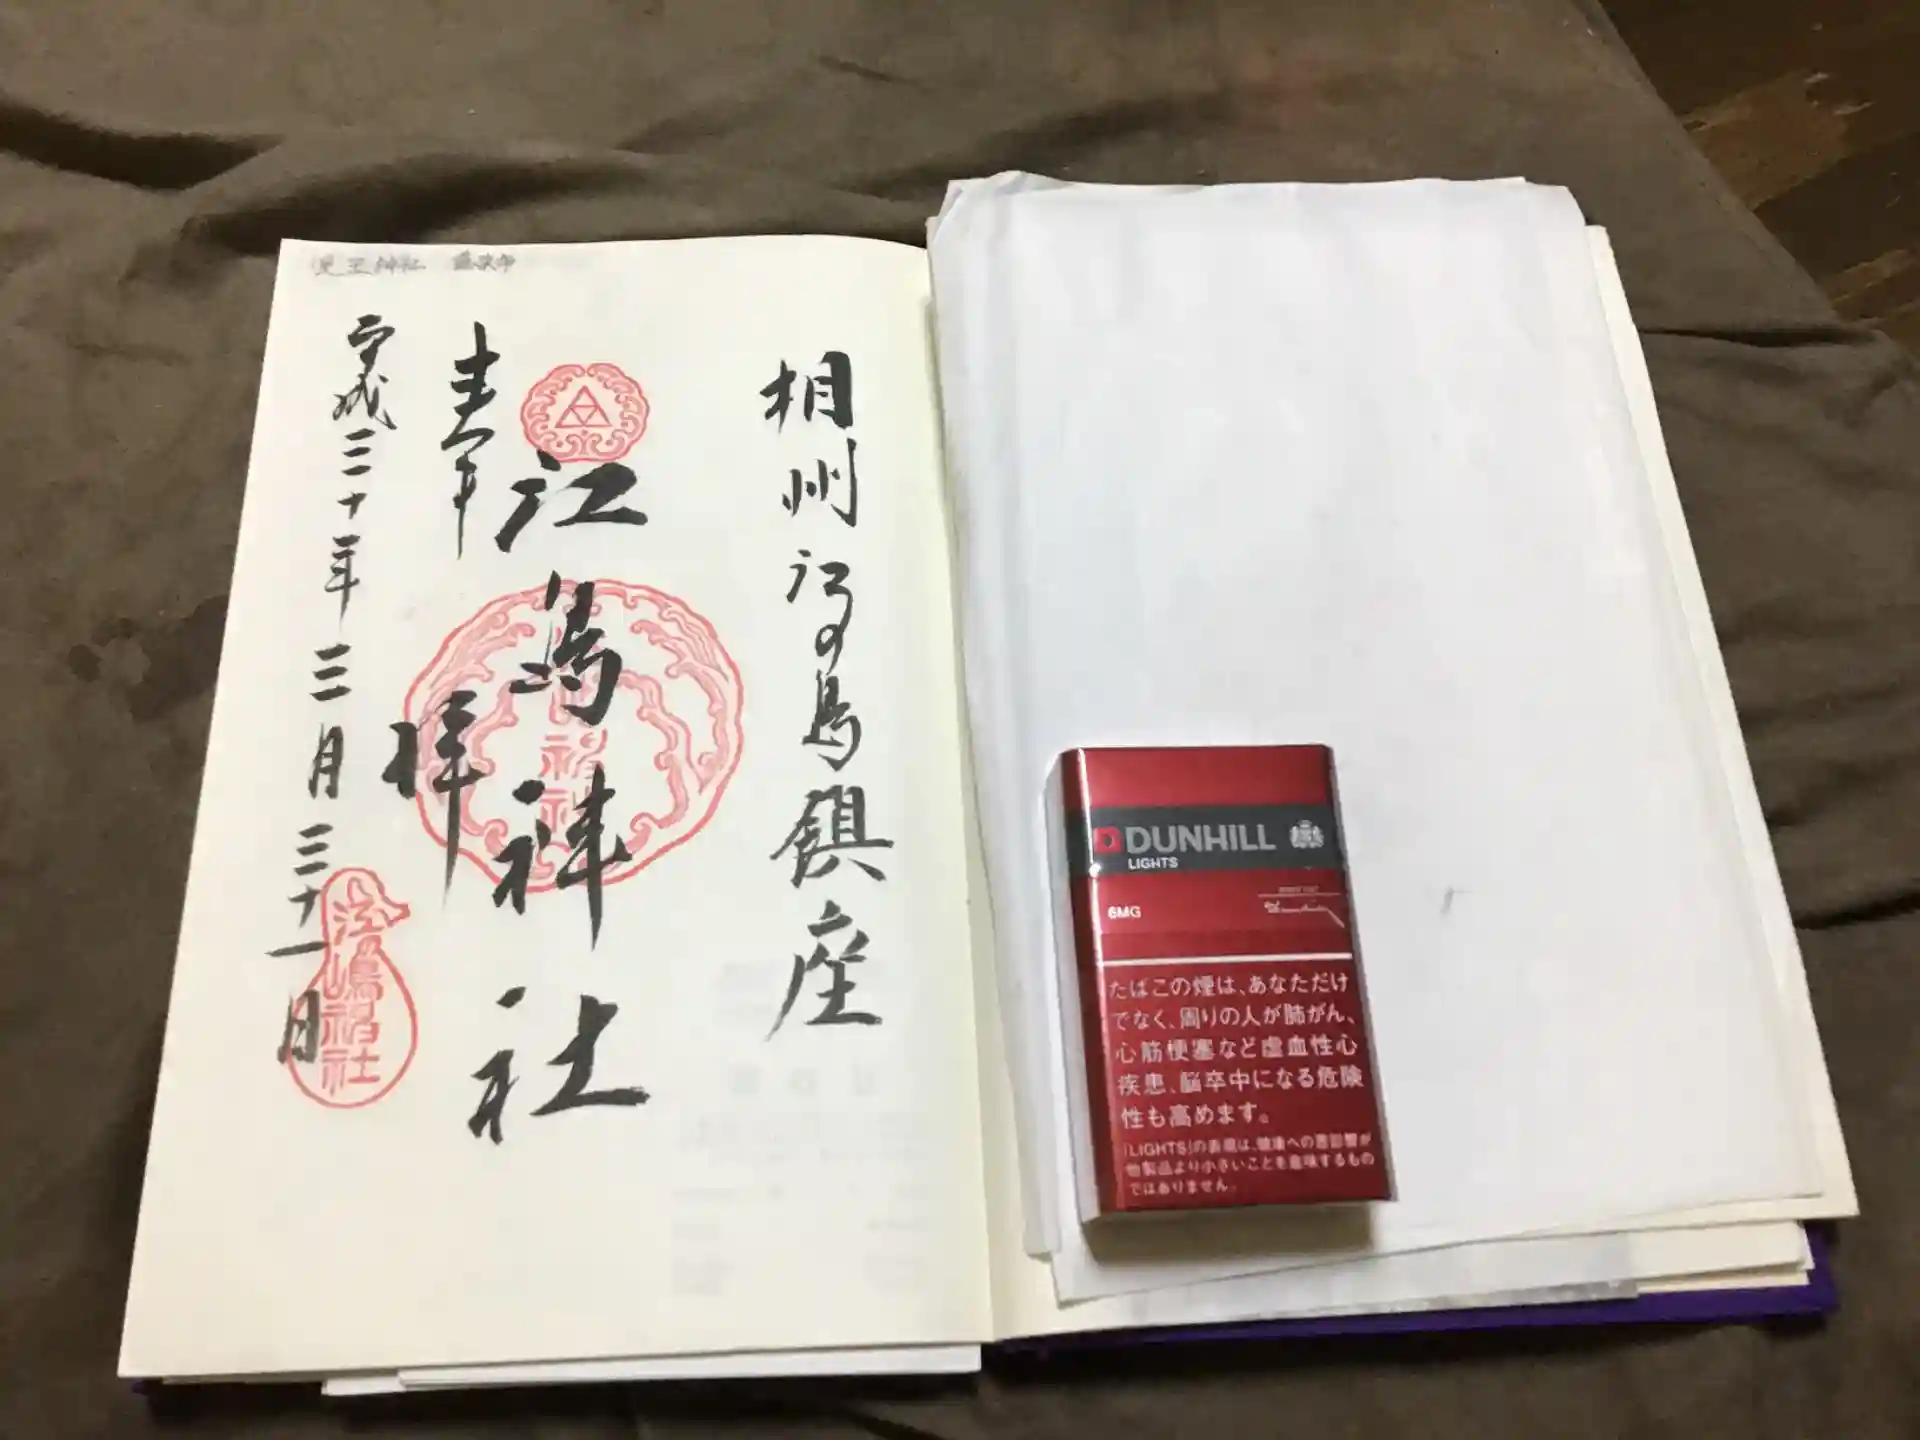 児玉神社
相州江の島鎮座
江島神社
奉拝
平成三十年三月三十一日
江の嶋
神社
DUNHILL
LIGHTS
6MG
たばこの煙は、あなただけ
でなく、周りの人が肺がん、
心筋梗塞など虚血性心
疾患、脳卒中になる危険
性も高めます。
「LIGHTS」の表現は、健康への悪影響が
他製品より小さいことを意味するもの
ではありません。